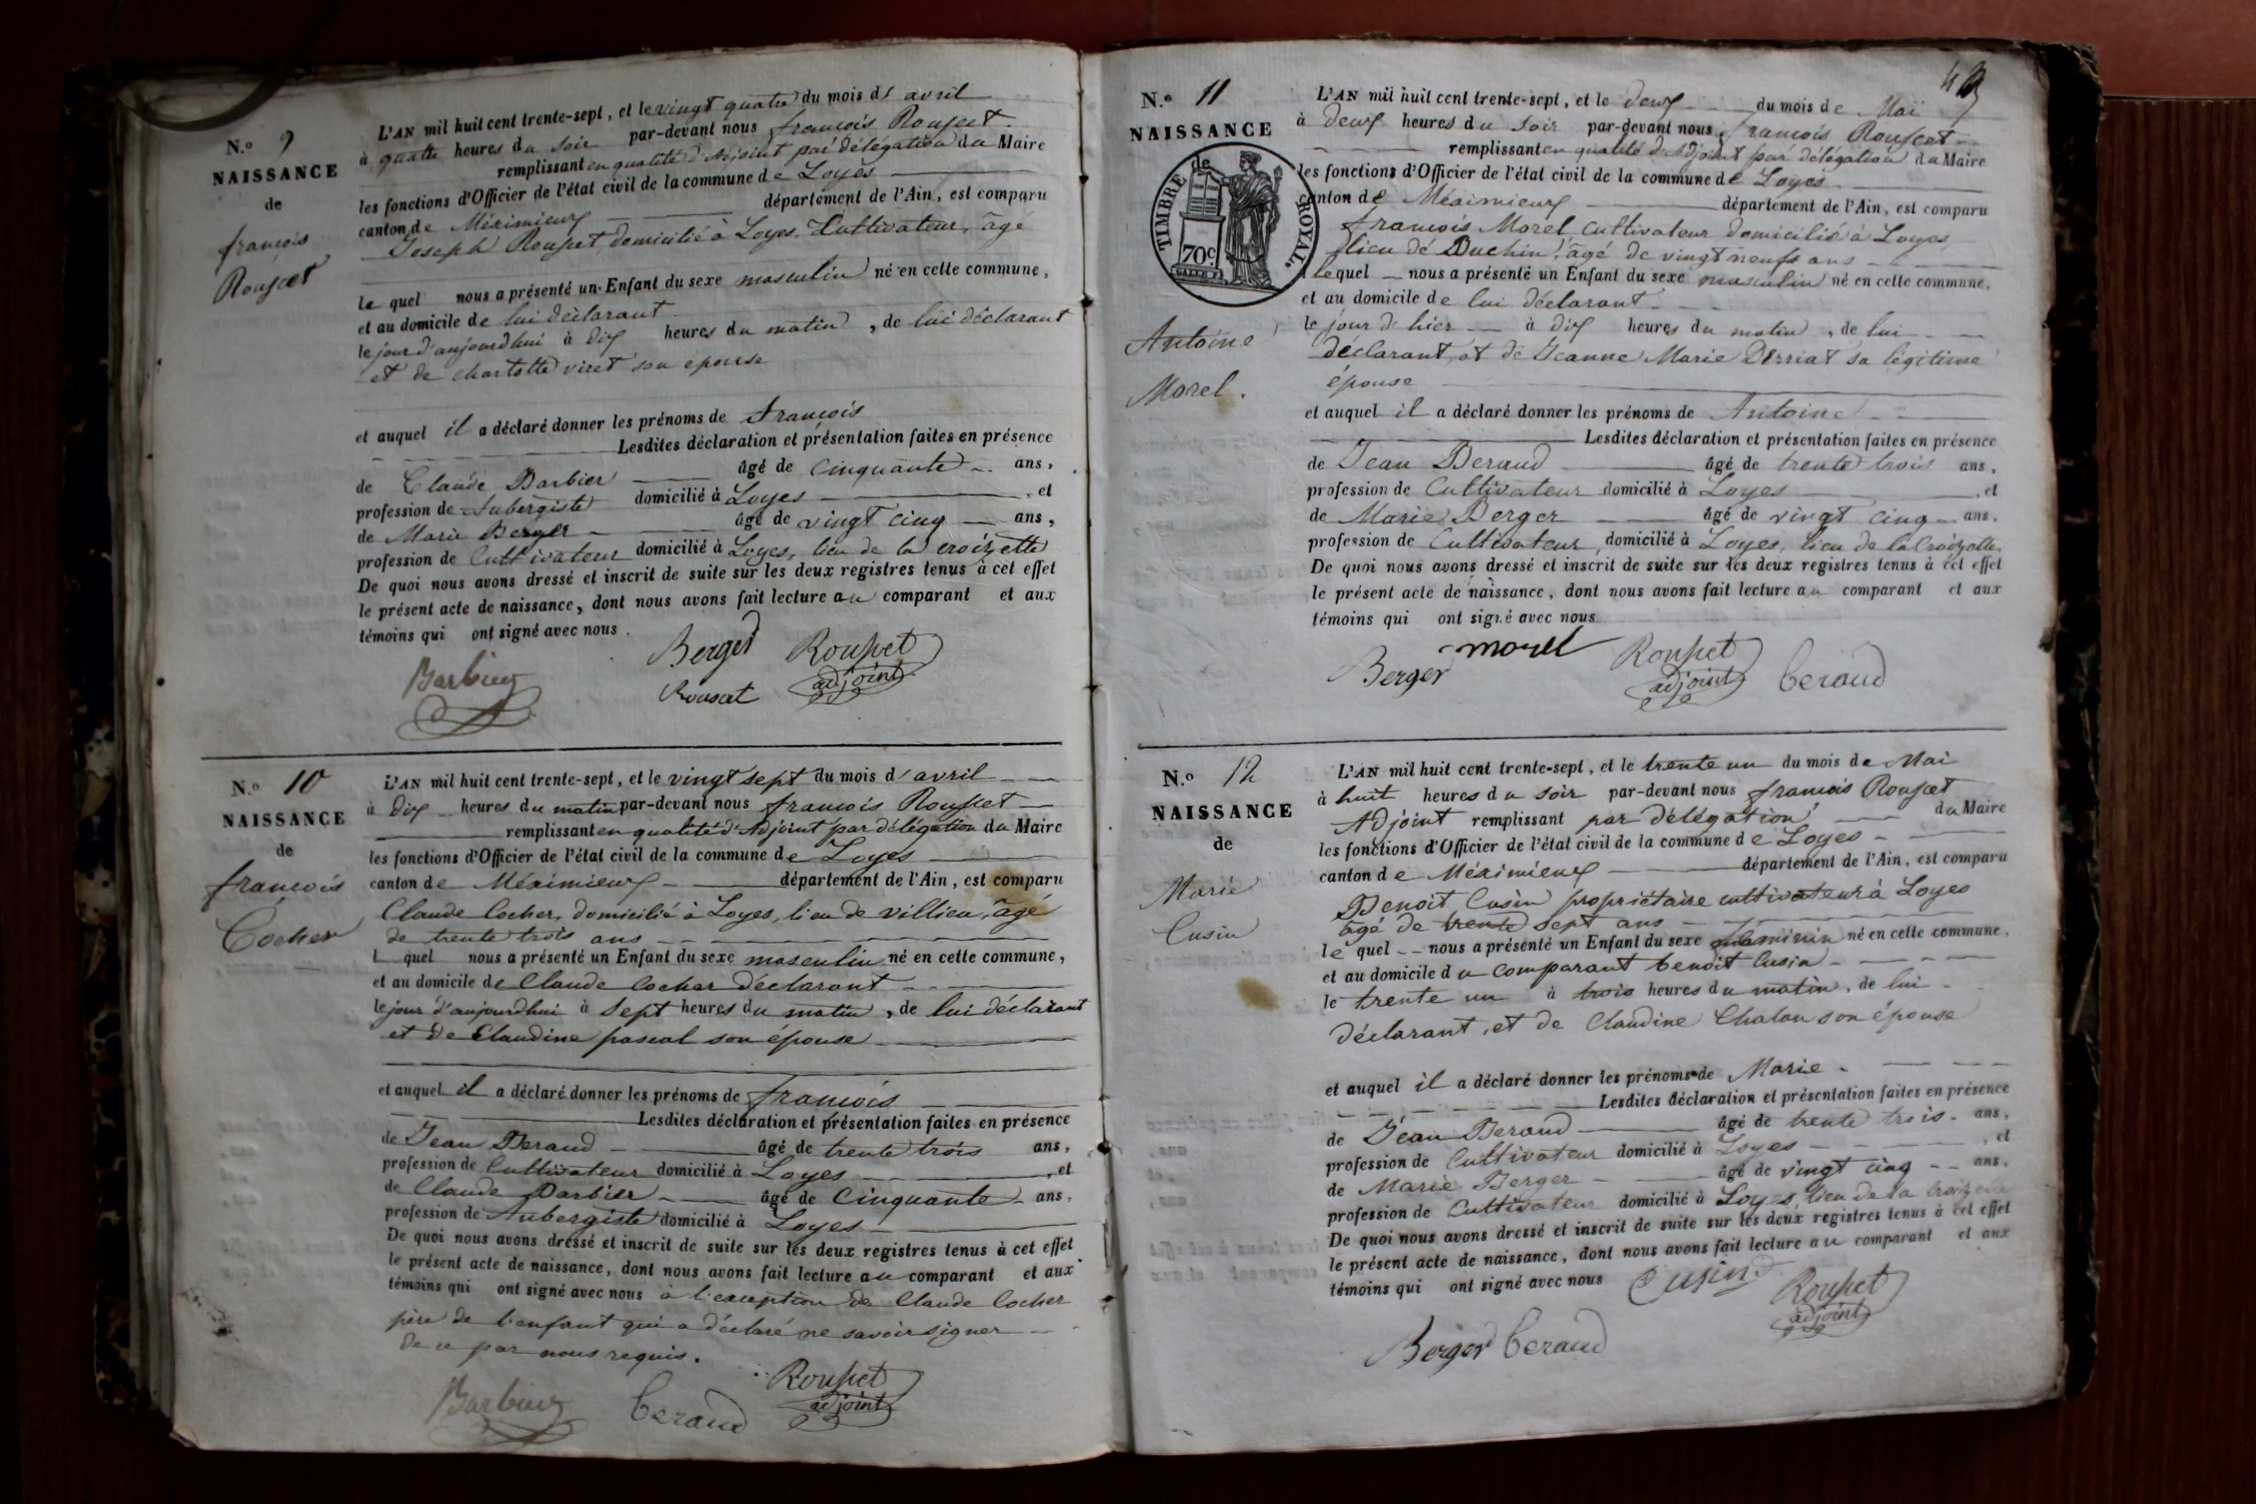 N.° 9
NAISSANCE
de
françois
Rousset
L'AN mil huit cent trente-sept, et le vingt quatre du mois d'avril
à quatre heures du soir par-devant nous françois Rousset
remplissant en qualité d'Adjoint par délégation du Maire
les fonctions d'Officier de l'état civil de la commune de Loyes
canton de Méximieux département de l'Ain, est comparu
Joseph Rousset, domicilié à Loyes, Cultivateur, âgé
le quel nous a présenté un Enfant du sexe masculin né en cette commune,
et au domicile de lui déclarant
le jour d'aujourdhui à dix heures du matin, de lui déclarant
et de charlotte viret son epouse
et auquel il a déclaré donner les prénoms de françois
Lesdites déclaration et présentation faites en présence
de Claude Barbier âgé de cinquante ans,
profession de Aubergiste domicilié à Loyes, et
de Marie Berger âgé de vingt cinq ans,
profession de Cultivateur domicilié à Loyes, lieu de la croizette
De quoi nous avons dressé et inscrit de suite sur les deux registres tenus à cet effet
le présent acte de naissance, dont nous avons fait lecture au comparant et aux
témoins qui ont signé avec nous.
Berger Rousset
adjoint
Barbier Rousset
N.° 10
NAISSANCE
de
françois
Cocher
L'AN mil huit cent trente-sept, et le vingt sept du mois d'avril
à dix heures du matin par-devant nous françois Rousset
remplissant en qualité d'Adjoint par délégation du Maire
les fonctions d'Officier de l'état civil de la commune de Loyes
canton de Méximieux département de l'Ain, est comparu
Claude Cocher, domicilié à Loyes, lieu de villieu, âgé
de trente trois ans
l quel nous a présenté un Enfant du sexe masculin né en cette commune,
et au domicile de Claude Cocher déclarant
le jour d'aujourdhui à sept heures du matin, de lui déclarant
et de Claudine pascal son épouse
et auquel il a déclaré donner les prénoms de françois
Lesdites déclaration et présentation faites en présence
de Jean Beraud âgé de trente trois ans,
profession de Cultivateur domicilié à Loyes, et
de Claude Barbier âgé de Cinquante ans,
profession de Aubergiste domicilié à Loyes
De quoi nous avons dressé et inscrit de suite sur les deux registres tenus à cet effet
le présent acte de naissance, dont nous avons fait lecture au comparant et aux
témoins qui ont signé avec nous a l'exception de Claude Cocher
père de l'enfant qui a déclaré ne savoir signer
de ce par nous requis.
Rousset
adjoint
Barbier beraud
N.° 11
NAISSANCE
de
TIMBRE ROYAL
70 c.
Antoine
Morel.
L'AN mil huit cent trente-sept, et le deux du mois de Mai
à deux heures du soir par-devant nous françois Rousset
remplissant en qualité d'Adjoint par délégation du Maire
les fonctions d'Officier de l'état civil de la commune de Loyes
canton de Méximieux département de l'Ain, est comparu
françois Morel cultivateur domicilié à Loyes
lieu de Buchin, âgé de vingt neuf ans
lequel nous a présenté un Enfant du sexe masculin né en cette commune,
et au domicile de lui déclarant
le jour d'hier à dix heures du matin, de lui
déclarant, et de Jeanne Marie Derriat sa légitime
épouse
et auquel il a déclaré donner les prénoms de Antoine
Lesdites déclaration et présentation faites en présence
de Jean Beraud âgé de trente trois ans,
profession de Cultivateur domicilié à Loyes, et
de Marie Berger âgé de vingt cinq ans,
profession de Cultivateur, domicilié à Loyes, lieu de la Croizette
De quoi nous avons dressé et inscrit de suite sur les deux registres tenus à cet effet
le présent acte de naissance, dont nous avons fait lecture au comparant et aux
témoins qui ont signé avec nous
Berger morel Rousset
adjoint beraud
N.° 12
NAISSANCE
de
Marie
Cusin
L'AN mil huit cent trente-sept, et le trente un du mois de Mai
à huit heures du soir par-devant nous françois Rousset
Adjoint remplissant par délégation du Maire
les fonctions d'Officier de l'état civil de la commune de Loyes
canton de Méximieux département de l'Ain, est comparu
Benoit Cusin propriétaire cultivateur à Loyes
âgé de trente sept ans
le quel nous a présenté un Enfant du sexe féminin né en cette commune,
et au domicile du comparant benoit Cusin
le trente un à trois heures du matin, de lui
déclarant, et de Claudine Chalon son épouse
et auquel il a déclaré donner les prénoms de Marie
Lesdites déclaration et présentation faites en présence
de Jean Beraud âgé de trente trois ans,
profession de Cultivateur domicilié à Loyes, et
de Marie Berger âgé de vingt cinq ans,
profession de Cultivateur domicilié à Loyes, lieu de la croizette
De quoi nous avons dressé et inscrit de suite sur les deux registres tenus à cet effet
le présent acte de naissance, dont nous avons fait lecture au comparant et aux
témoins qui ont signé avec nous Cusin Rousset
adjoint
Berger beraud